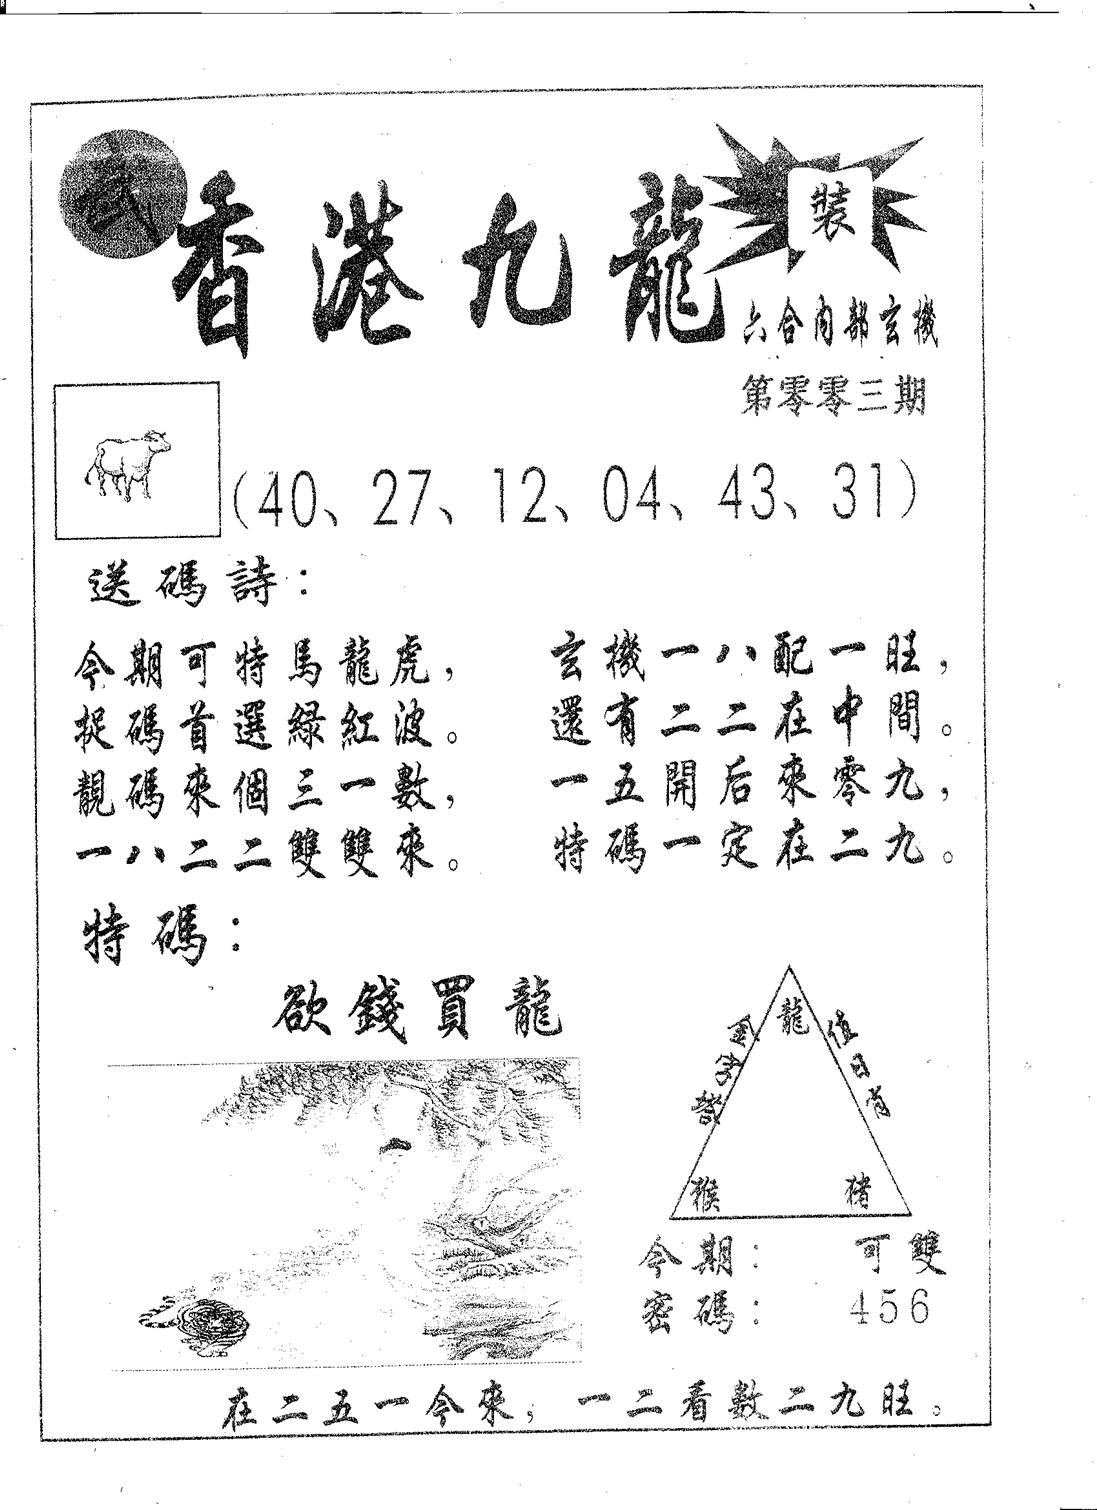 武
香港九龍
裝
六合内部玄機
第零零三期
(40、27、12、04、43、31)
送碼詩:
今期可特馬龍虎,
捉碼首選綠紅波。
靚碼來個三一數,
一八二二雙雙來。
玄機一八配一旺,
還有二二在中間。
一五開后來零九,
特碼一定在二九。
特碼:
欲錢買龍
金字
龍
值日肖
猴
猪
今期: 可雙
密碼: 456
在二五一今來, 一二看數二九旺。